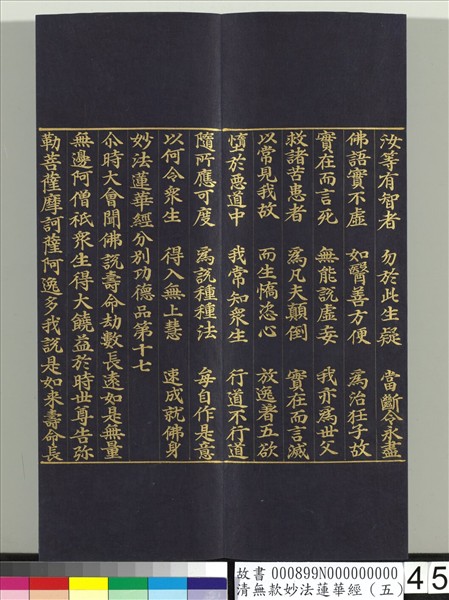 汝等有智者　勿於此生疑　當斷令永盡
佛語實不虛　如醫善方便　為治狂子故
實在而言死　無能說虛妄　我亦為世父
救諸苦患者　為凡夫顛倒　實在而言滅
以常見我故　而生憍恣心　放逸著五欲
墮於惡道中　我常知眾生　行道不行道
隨所應可度　為說種種法　每自作是意
以何令眾生　得入無上慧　速成就佛身
妙法蓮華經分別功德品第十七
尒時大會聞佛說壽命劫數長遠如是無量
無邊阿僧祇眾生得大饒益於時世尊告弥
勒菩薩摩訶薩阿逸多我說是如來壽命長
故書 000899N000000000
清無款妙法蓮華經（五）
45